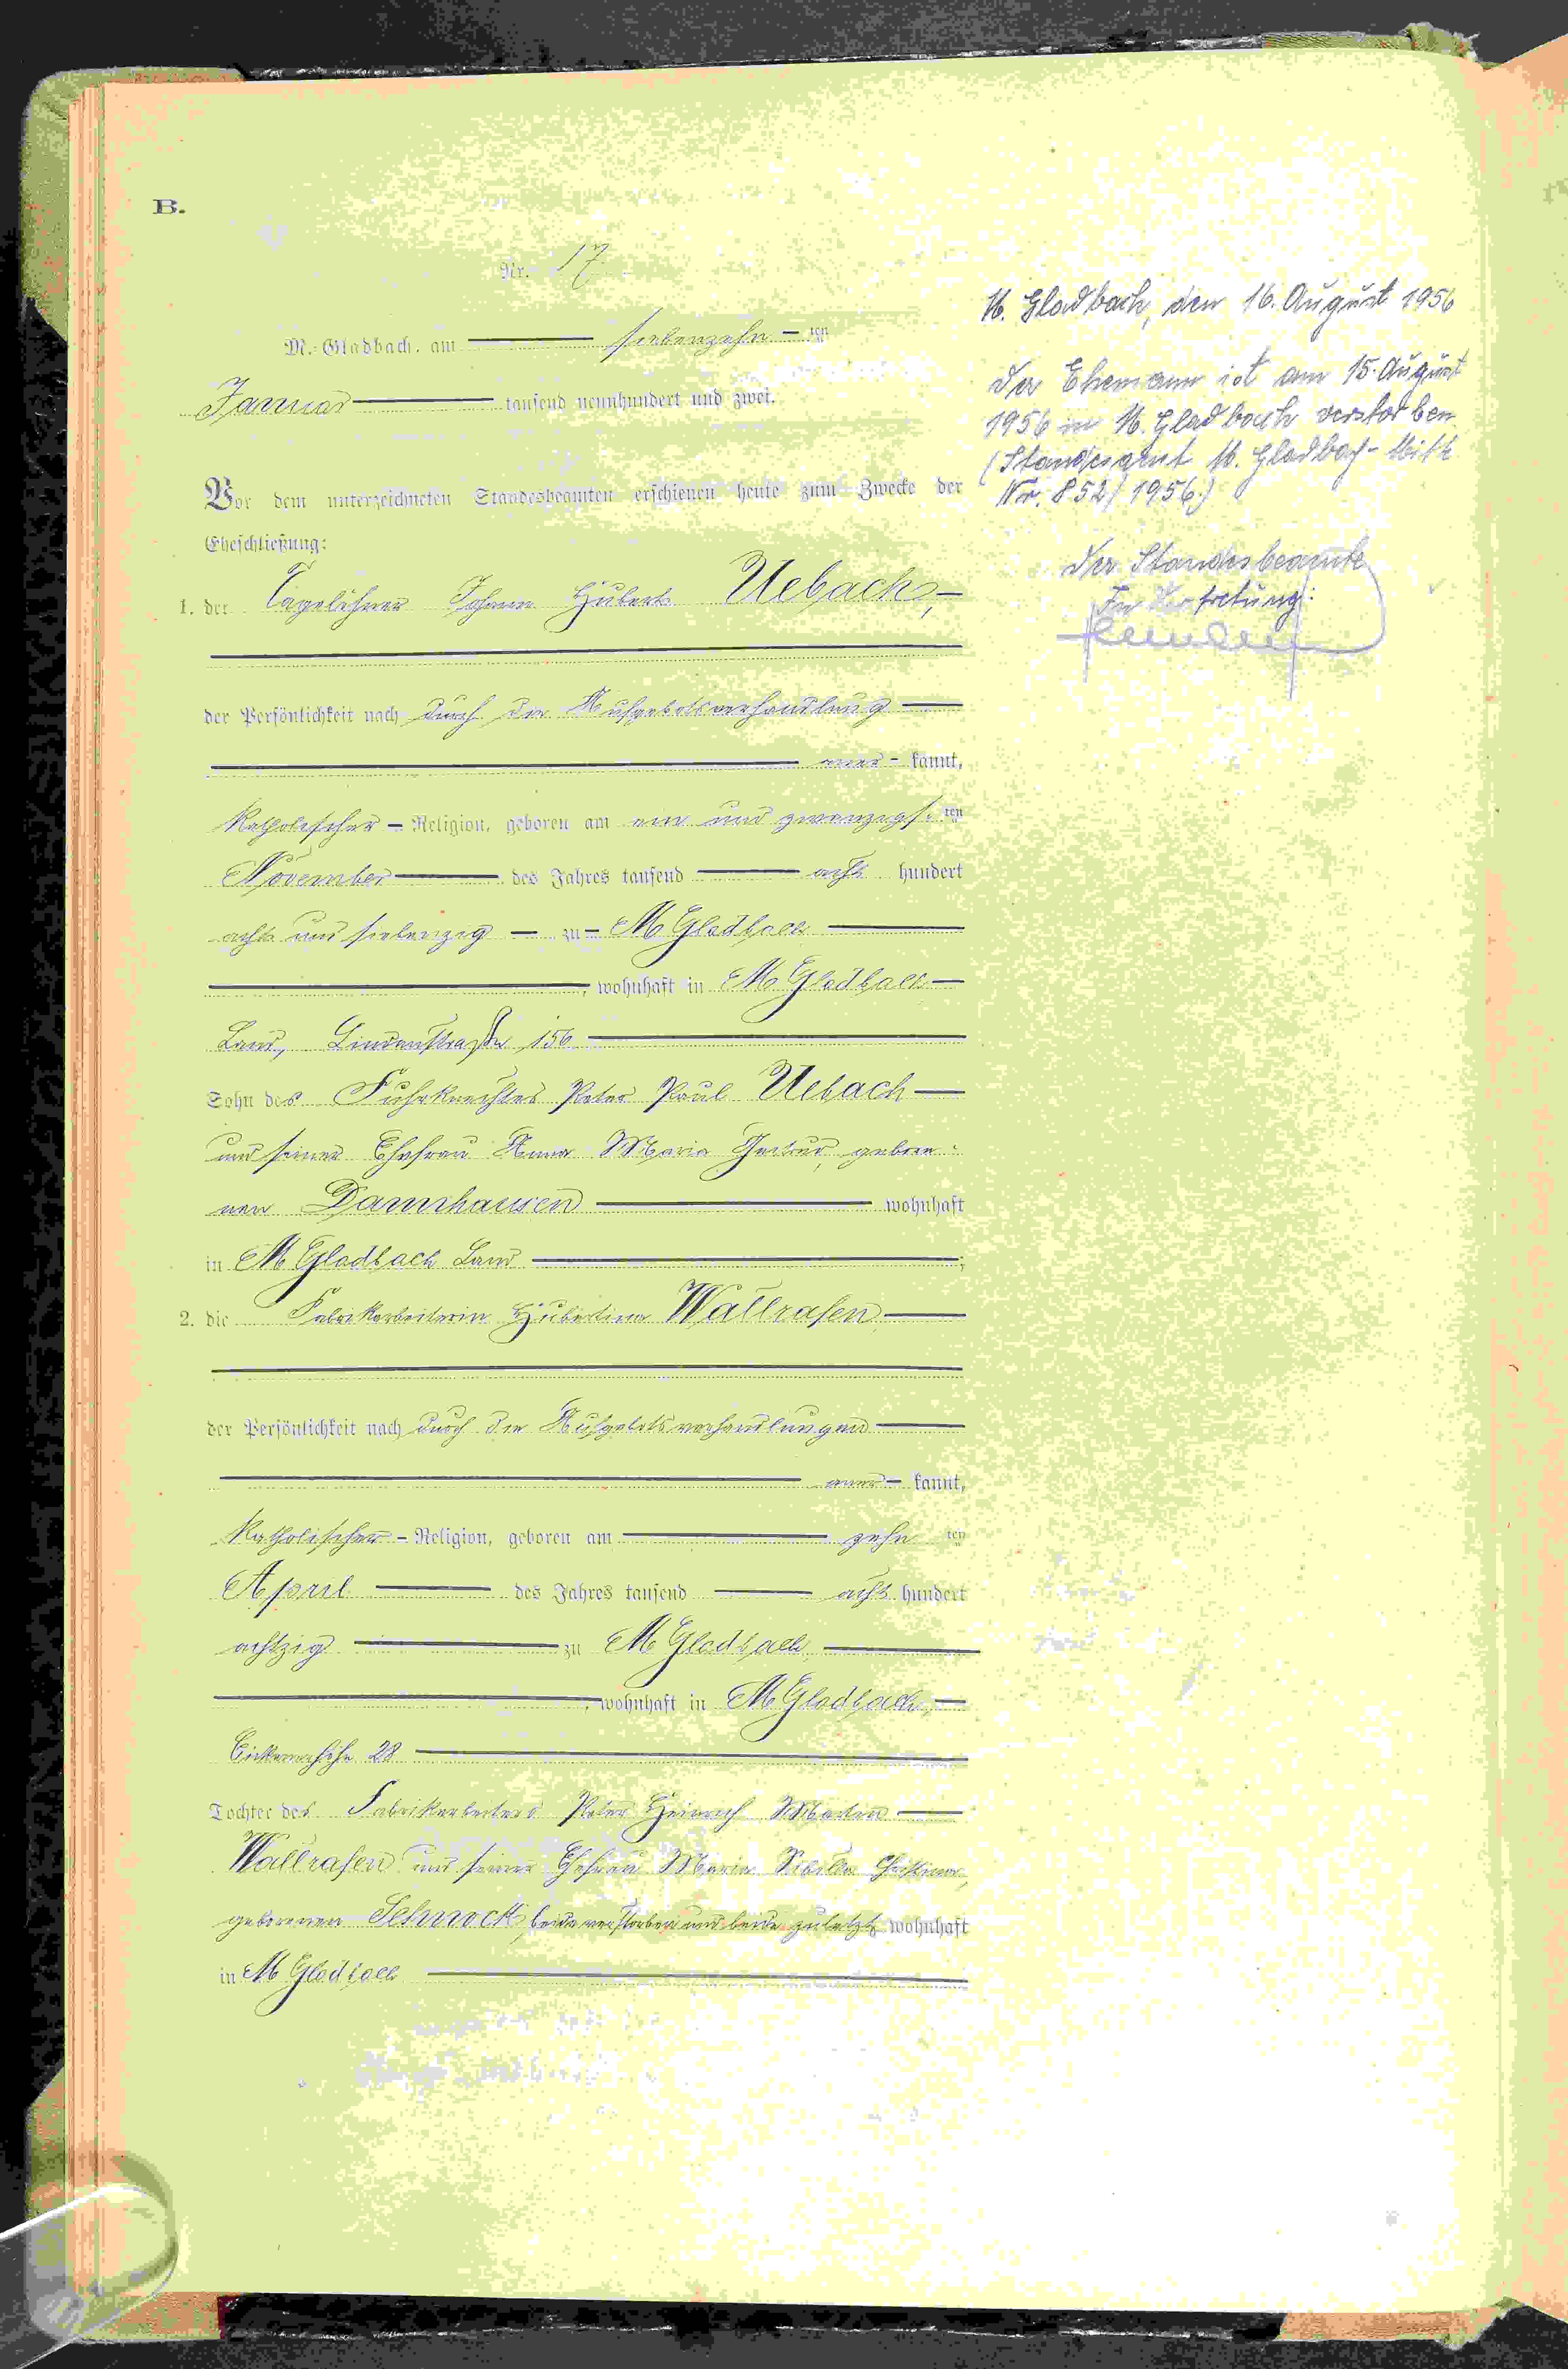 B.
Nr. 17
M.-Gladbach, am siebenzehn ten
Januar tausend neunhundert und zwei.
Vor dem unterzeichneten Standesbeamten erschienen heute zum Zwecke der
Eheschließung:
1. der Tagelöhner Johann Hubert Uebach,
der Persönlichkeit nach durch die Aufgebotsverhandlung
aner- kannt,
katholischer Religion, geboren am ein und zwanzigsten
November des Jahres tausend acht hundert
acht und siebenzig zu M Gladbach
, wohnhaft in M Gladbach
Land, Lindenstraße 156
Sohn des Fuhrknechtes Peter Paul Uebach
und seiner Ehefrau Anna Maria Gertrud, gebore-
nen Dammhausen wohnhaft
in M Gladbach Land ;
2. die Fabrikarbeiterin Hubertina Wallrafen
der Persönlichkeit nach durch die Aufgebotsverhandlungen
aner- kannt,
katholischer Religion, geboren am zehn ten
April des Jahres tausend acht hundert
achtzig zu M Gladbach
, wohnhaft in M Gladbach,
28
Tochter des Fabrikarbeiters Peter Heinrich Martin
Wallrafen und seiner Ehefrau Maria Sibilla Christina,
geborenen Schmock, beide verstorben und beide zuletzt wohnhaft
in M Gladbach
M. Gladbach, den 16. August 1956
Der Ehemann ist am 15. August
1956 in M. Gladbach verstorben
(Standesamt M. Gladbach-Mitte
Nr. 852/1956.)
Der Standesbeamte
In Vertretung: